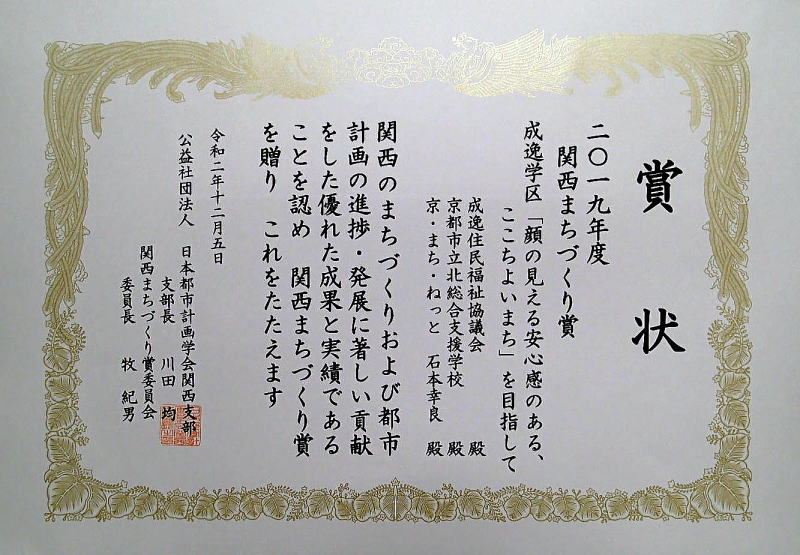 賞状
二〇一九年度
関西まちづくり賞
成逸学区「顔の見える安心感のある、
ここちよいまち」を目指して
成逸住民福祉協議会 殿
京都市立北総合支援学校 殿
京・まち・ねっと 石本幸良 殿
関西のまちづくりおよび都市
計画の進捗・発展に著しい貢献
をした優れた成果と実績である
ことを認め 関西まちづくり賞
を贈り これをたたえます
令和二年十二月五日
公益社団法人 日本都市計画学会関西支部
支部長 川田 均
関西まちづくり賞委員会
委員長 牧 紀男